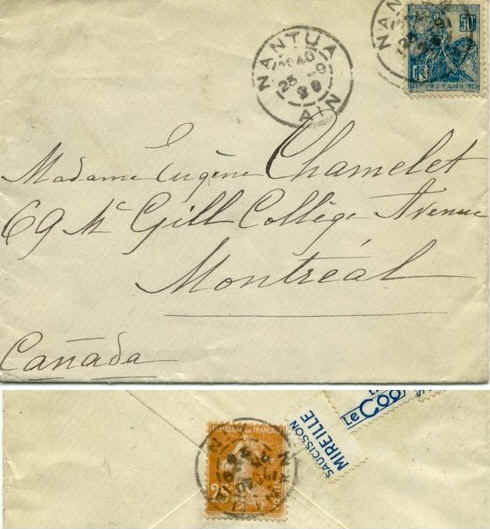 NANTUA
23 -9
29
AIN
Madame Eugène Chamelet
69 Mc Gill Collège Avenue
Montréal
Canada
SAUCISSON
MIREILLE
LE COQ
25